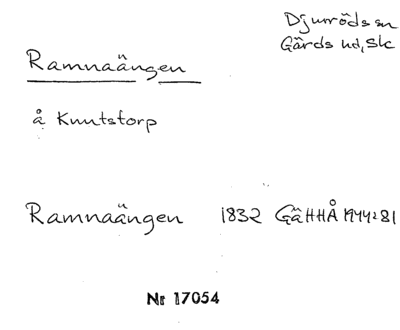 Djurröds sn
Gärds hd, Sk
Ramnaängen
å Knutstorp
Ramnaängen 1832 GäHHÅ 1944:81
Nr 17054